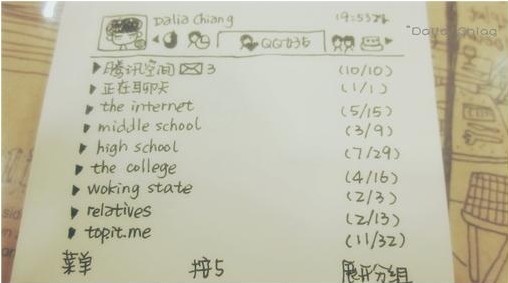 Dalia Chiang 19:53
QQ
腾讯空间 3 (10/10)
正在聊天 (1/1)
the internet (5/15)
middle school (3/9)
high school (7/29)
the college (4/16)
woking state (2/3)
relatives (2/13)
topit.me (11/32)
菜单 按5 展开分组